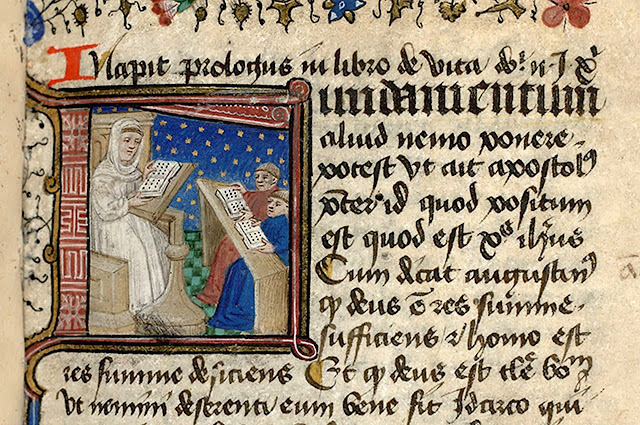 Incipit prologus in libro de vita
Fundamentum
aliud nemo ponere
potest vt ait apostolꝰ
p̄ter id quod positum
est quod est xp̄s ih̄us
Cum dicat augustinꝰ
ꝙ deus ē res summe
sufficiens ⁊ homo est
res summe deficiens Et ꝙ deus est
Vt nemini deserenti eum bene sit Idcirco qui